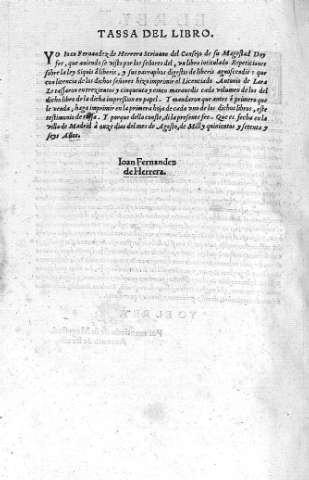 TASSA DEL LIBRO.
YO Ioan Fernandez de Herrera Scriuano del Consejo de su Magestad Doy
fee, que auiendose visto por los señores del, vn libro intitulado Repeticiones
sobre la ley Siquis à liberis, y sus parraphos digestis de liberis agnoscendis: que
con licencia de los dichos señores hizo imprimir el Licenciado Antonio de Lara
Le tassaron en trezientos y cinquenta y cinco marauedis cada volumen de los del
dicho libro de la dicha impression en papel. Y mandaron que antes ê primero que
le venda, haga imprimir en la primera hoja de cada vno de los dichos libros, este
testimonio de tassa. Y porque dello conste, di la presente fee. Que es fecha en la
villa de Madrid à onze dias del mes de Agosto, de Mill y quinientos y setenta y
seys Años.
Ioan Fernandez
de Herrera.